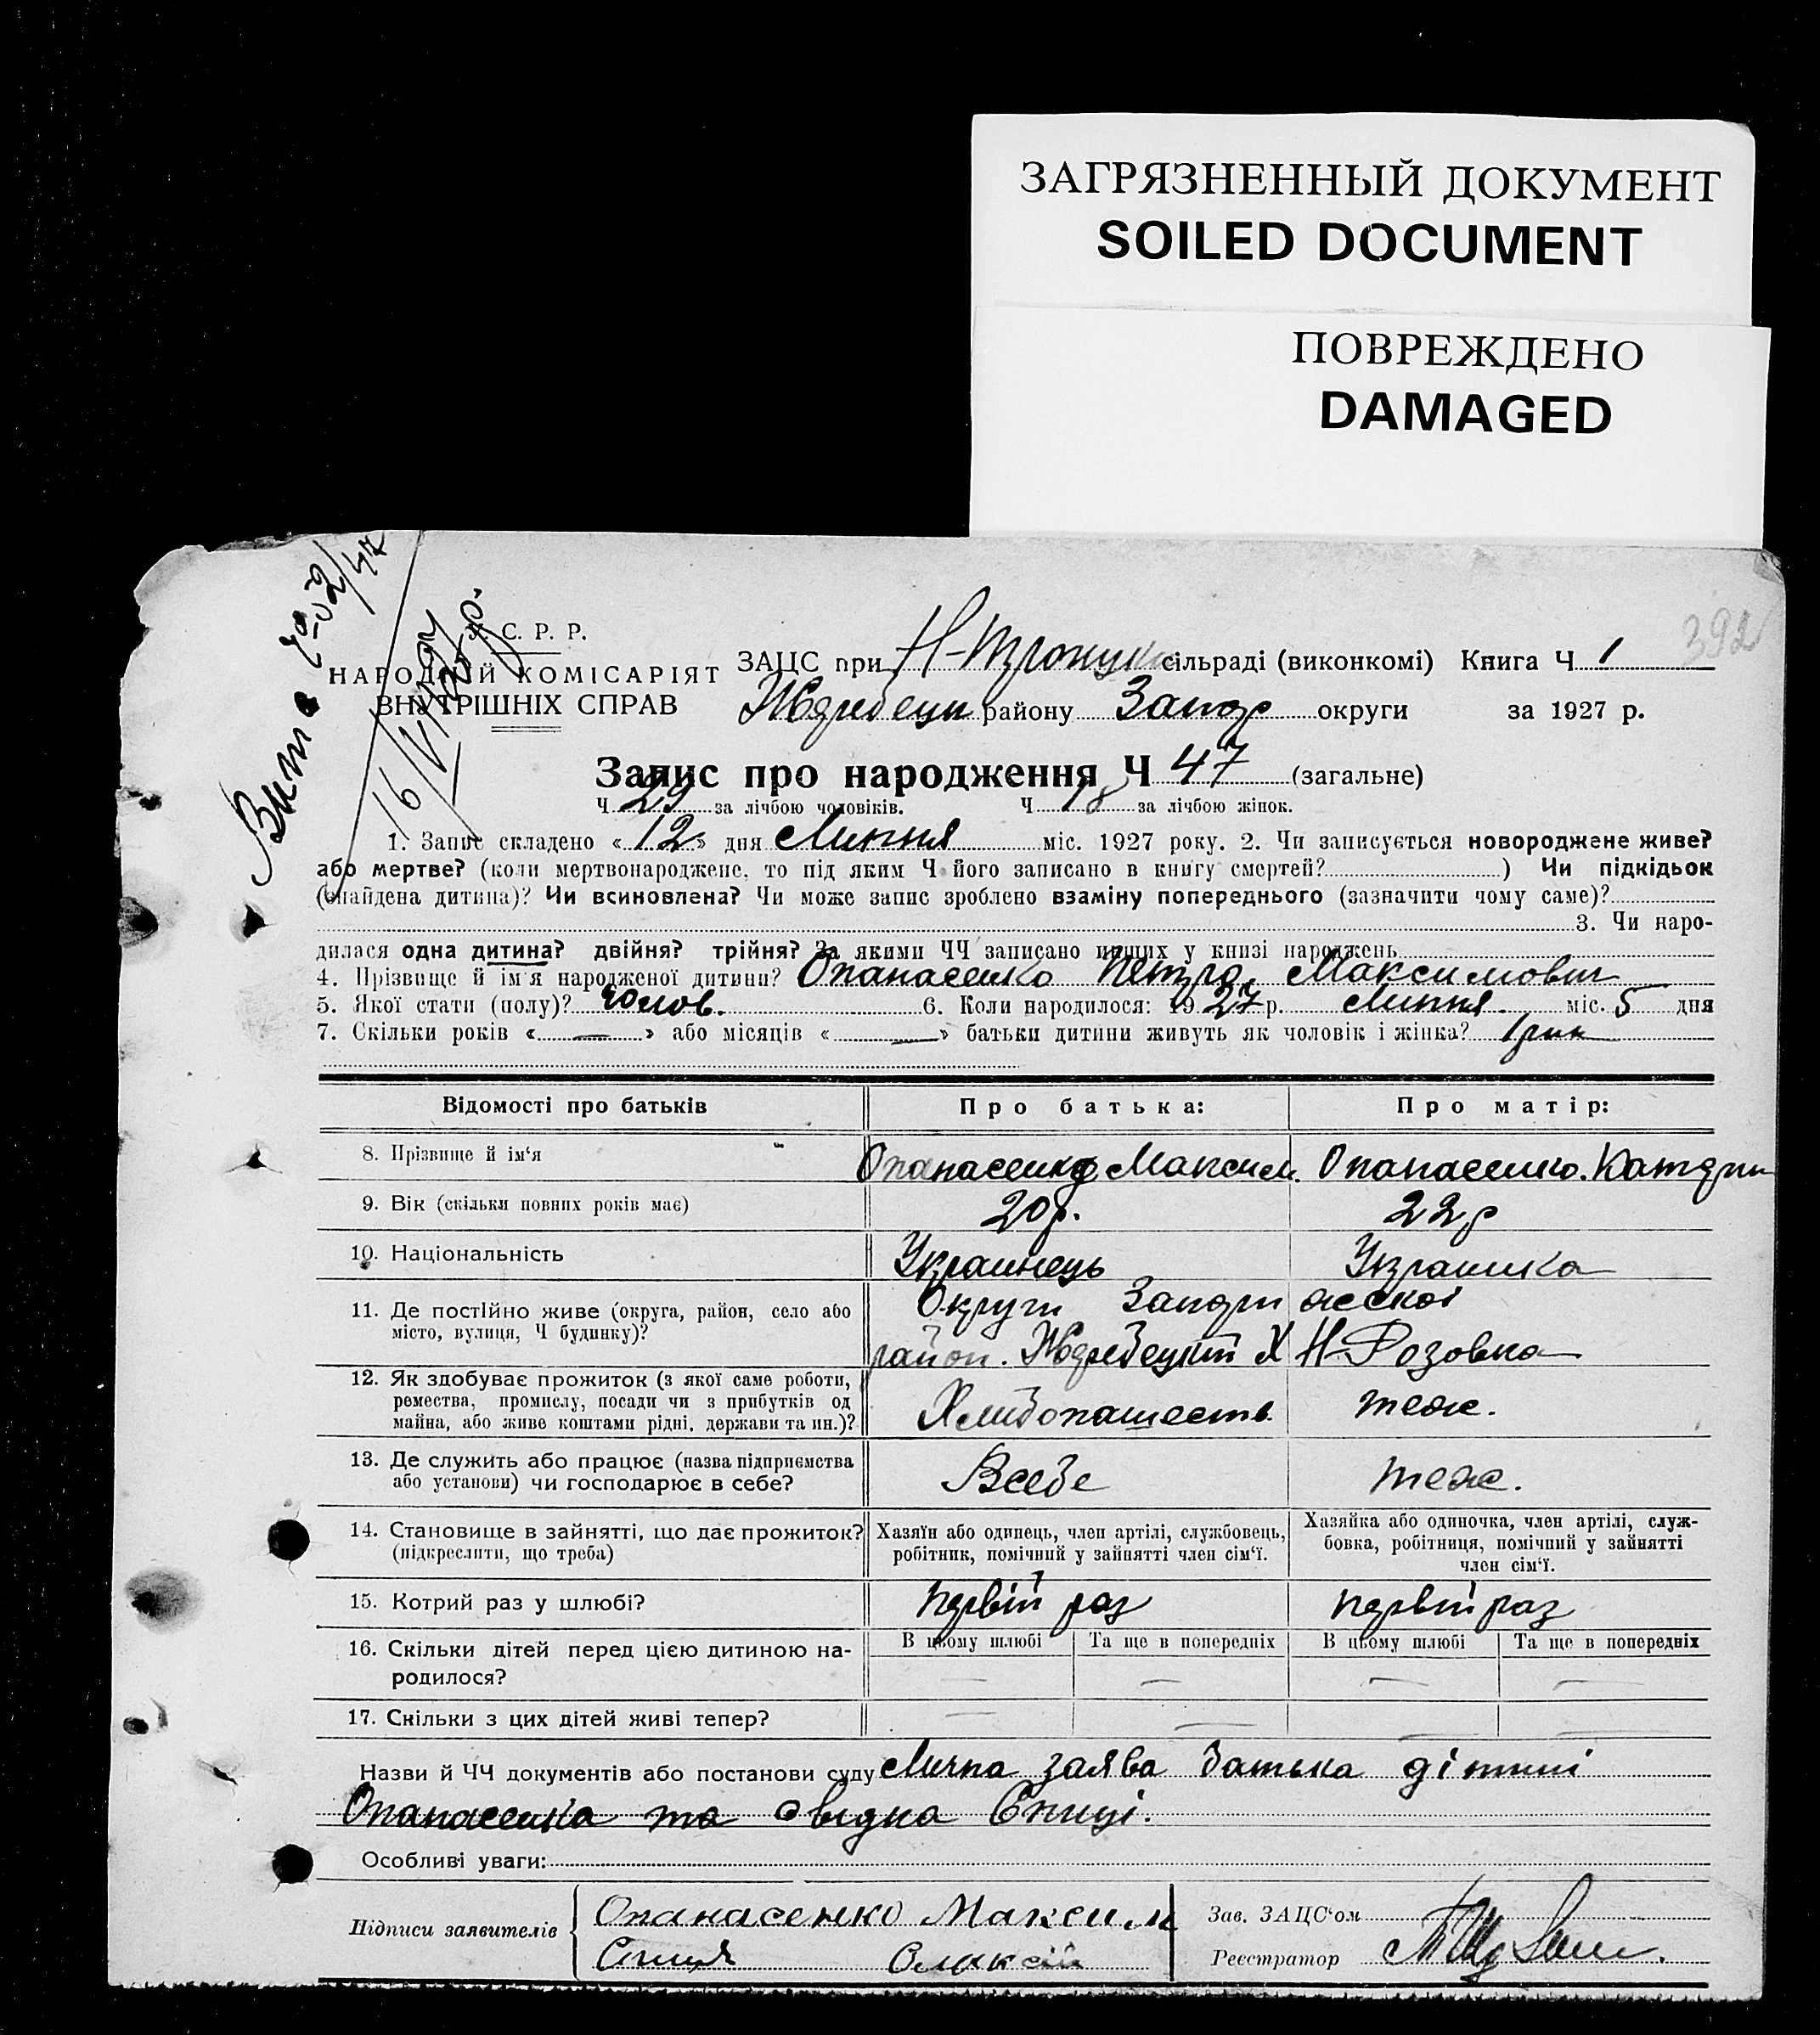 ЗАГРЯЗНЕННЫЙ ДОКУМЕНТ
SOILED DOCUMENT
ПОВРЕЖДЕНО
DAMAGED
392
У. С. Р. Р.
НАРОДНІЙ КОМІСАРІЯТ
ВНУТРІШНІХ СПРАВ
ЗАЦС при сільраді (виконкомі) Книга Ч 1
району Запор округи за 1927 р.
Запис про народження Ч 47 (загальне)
Ч 29 за лічбою чоловіків. Ч 18 за лічбою жінок.
1. Запис складено «12» дня Липня міс. 1927 року. 2. Чи записується новороджене живе?
або мертве? (коли мертвонароджене, то під яким Ч його записано в книгу смертей? ) Чи підкідьок
(знайдена дитина)? Чи всиновлена? Чи може запис зроблено взаміну попереднього (зазначити чому саме)?
3. Чи наро-
дилася одна дитина? двійня? трійня? За якими ЧЧ записано инших у книзі народжень
4. Прізвище й ім'я народженої дитини? Опанасенко Петро Максимович
5. Якої стати (полу)? чолов. 6. Коли народилося: 1927 р. Липня міс. 5 дня
7. Скільки років «—» або місяців «—» батьки дитини живуть як чоловік і жінка? 1 рик
Відомості про батьків
Про батька:
Про матір:
8. Прізвище й ім'я Опанасенко Максим. Опанасенко. Катерин
9. Вік (скільки повних років має) 20 р. 22 р
10. Національність Украинець Украинка
11. Де постійно живе (округа, район, село або
місто, вулиця, Ч будинку)?
Округи Запорижской
район. Жеребецкий Х Н-Розовка
12. Як здобуває прожиток (з якої саме роботи,
ремества, промислу, посади чи з прибутків од
майна, або живе коштами рідні, держави та ин.)?
Хлибопашеств. теж.
13. Де служить або працює (назва підприємства
або установи) чи господарює в себе?
Всебе теж.
14. Становище в зайнятті, що дає прожиток?
(підкреслити, що треба)
Хазяїн або одинець, член артілі, службовець,
робітник, помічний у зайнятті член сім'ї.
Хазяйка або одиночка, член артілі, служ-
бовка, робітниця, помічний у зайнятті
член сім'ї.
15. Котрий раз у шлюбі? первій раз первий раз
16. Скільки дітей перед цією дитиною на-
родилося?
В цьому шлюбі Та ще в попередніх В цьому шлюбі Та ще в попередніх
— — — —
17. Скільки з цих дітей живі тепер? — — — —
Назви й ЧЧ документів або постанови суду Лична заява батька дітині
Опанасенка та свідка Спиці.
Особливі уваги:
Підписи заявителів
Опанасенко Максим
Спиця Олексій
Зав. ЗАЦС'ом
Реєстратор